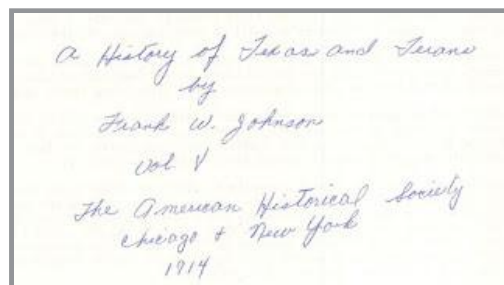 A History of Texas and Texans
by
Frank W. Johnson
Vol. V
The American Historical Society
Chicago & New York
1914